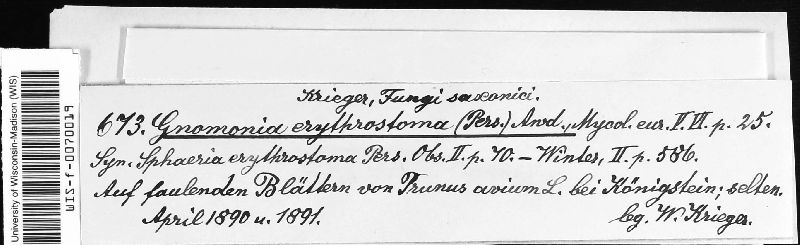 University of Wisconsin-Madison (WIS)
WIS-f-0070019
Krieger, Fungi saxonici.
673. Gnomonia erythrostoma (Pers.) Awd., Mycol. eur. V. VI. p. 25.
Syn. Sphaeria erythrostoma Pers. Obs. II. p. 70. – Winter, II. p. 586.
Auf faulenden Blättern von Prunus avium L. bei Königstein; selten.
April 1890 u. 1891. lg. W. Krieger.